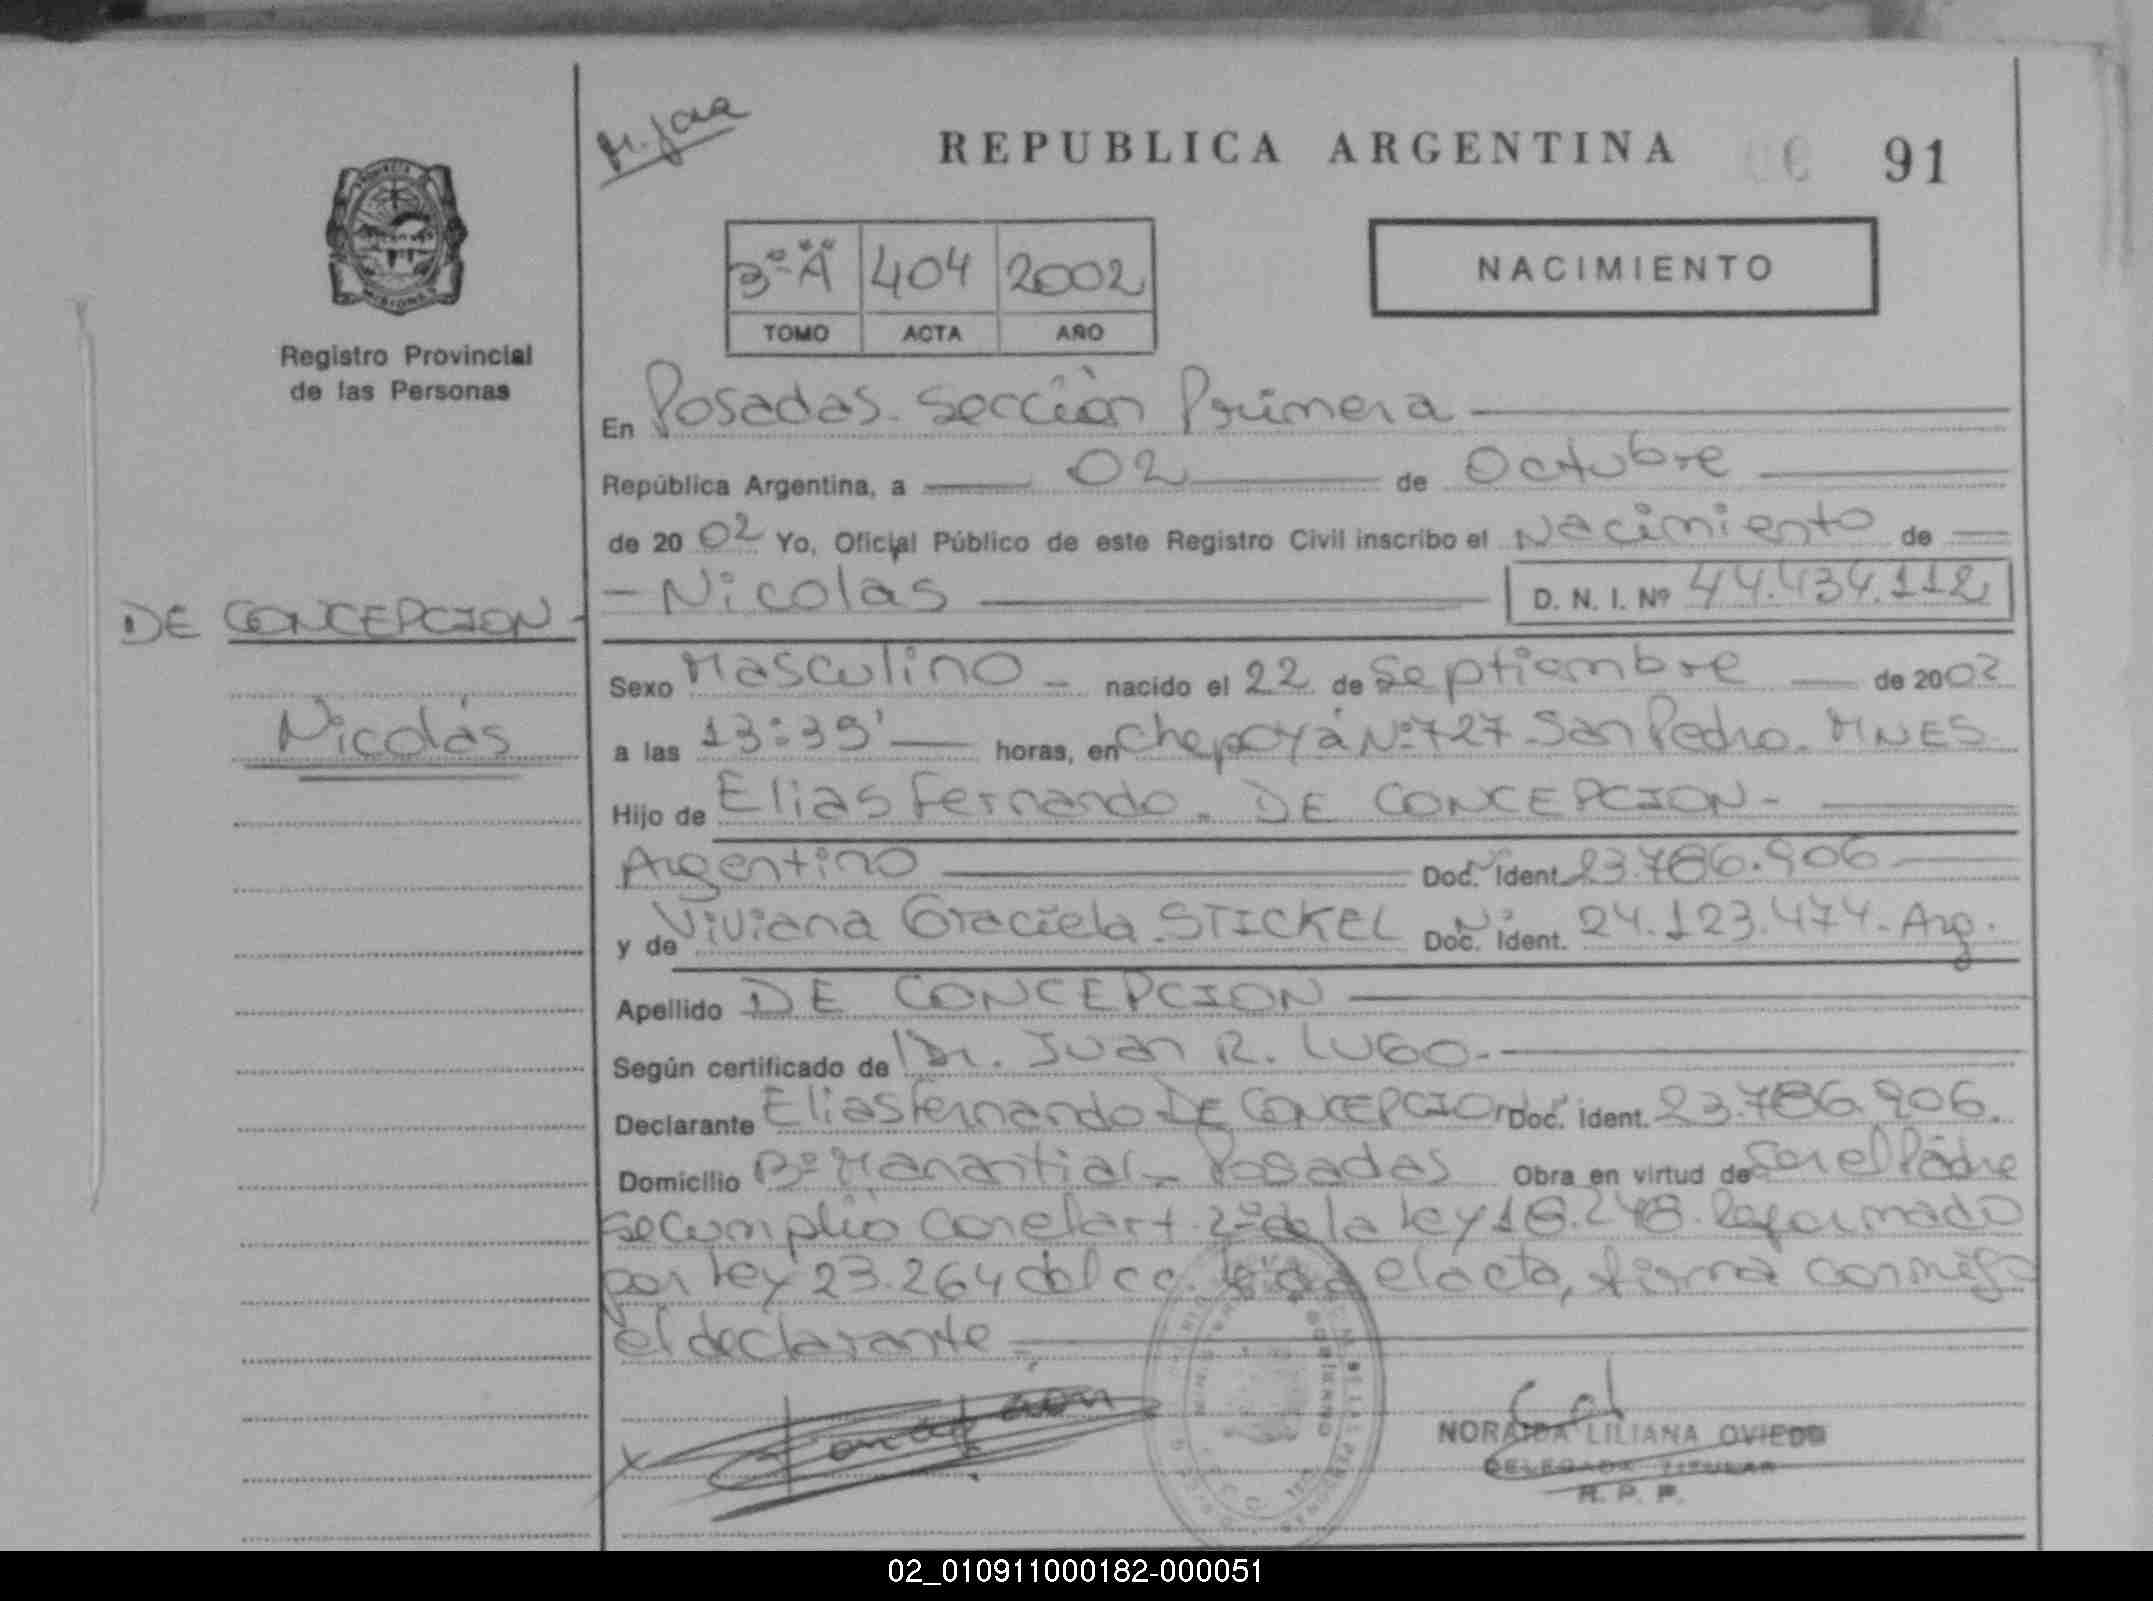 REPUBLICA ARGENTINA 91
3º "A" 404 2002
TOMO ACTA AÑO
NACIMIENTO
Registro Provincial
de las Personas
En Posadas. Sección Primera
República Argentina, a 02 de Octubre
de 2002 Yo, Oficial Público de este Registro Civil inscribo el Nacimiento de
- Nicolas D. N. I. Nº 44.434.112
DE CONCEPCION -
Nicolás
Sexo Masculino - nacido el 22 de Septiembre de 2002
a las 13:39' horas, en Chapoyá Nº 727. San Pedro. MNES
Hijo de Elias Fernando. DE CONCEPCION -
Argentino Doc. Ident. 23.786.906
y de Viviana Graciela. STICKEL Doc. Ident. 24.123.474. Arg.
Apellido DE CONCEPCION
Según certificado de Dr. Juan R. LUGO.
Declarante Elias Fernando DE CONCEPCION Doc. ident. 23.786.906.
Domicilio Bº Manantial - Posadas Obra en virtud de Ser el Padre
se cumplio con el art. 2º de la Ley 18.248. Reformado
por Ley 23.264 del cc. leida el acta, firma conmigo
el declarante
NORAIDA LILIANA OVIEDO
DELEGADA TITULAR
R. P. P.
02_010911000182-000051